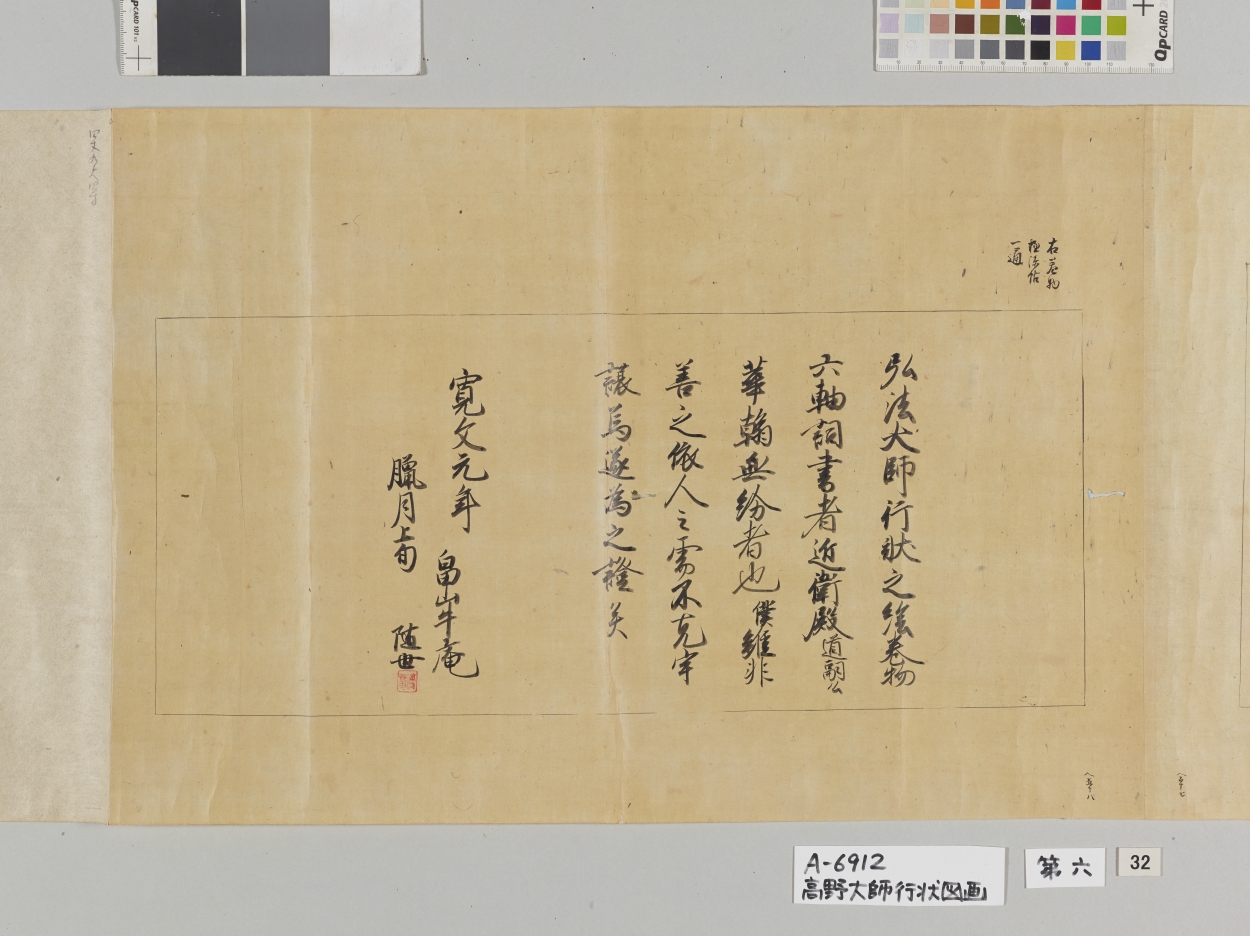 右巻物
極添帖
一通
弘法大師行状之絵巻物
六軸詞書者近衛殿道嗣公
華翰無紛者也僕雖非
善之依人之需不克牢
譲焉遂為之證矣
寛文元年
臘月上旬
畠山牛庵
随世
A-6912
高野大師行状図画
第六
32
QPCARD 101
QPCARD